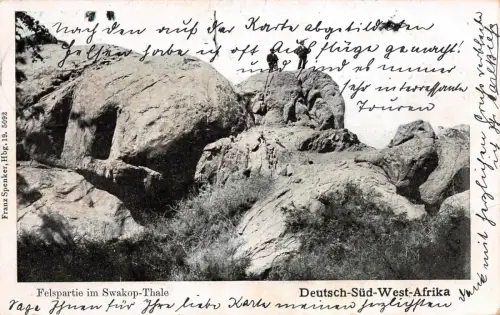 Nach den auf der Karte abgebildeten
Felsen habe ich oft Ausflüge gemacht!
und es immer
sehr interessante
Touren.
Franz Spenker, Hbg. 19. 5092
Felspartie im Swakop-Thale
Deutsch-Süd-West-Afrika
Sage Ihnen für Ihre liebe Karte meinen herzlichsten
Dank mit herzlichem Gruss verbleibe